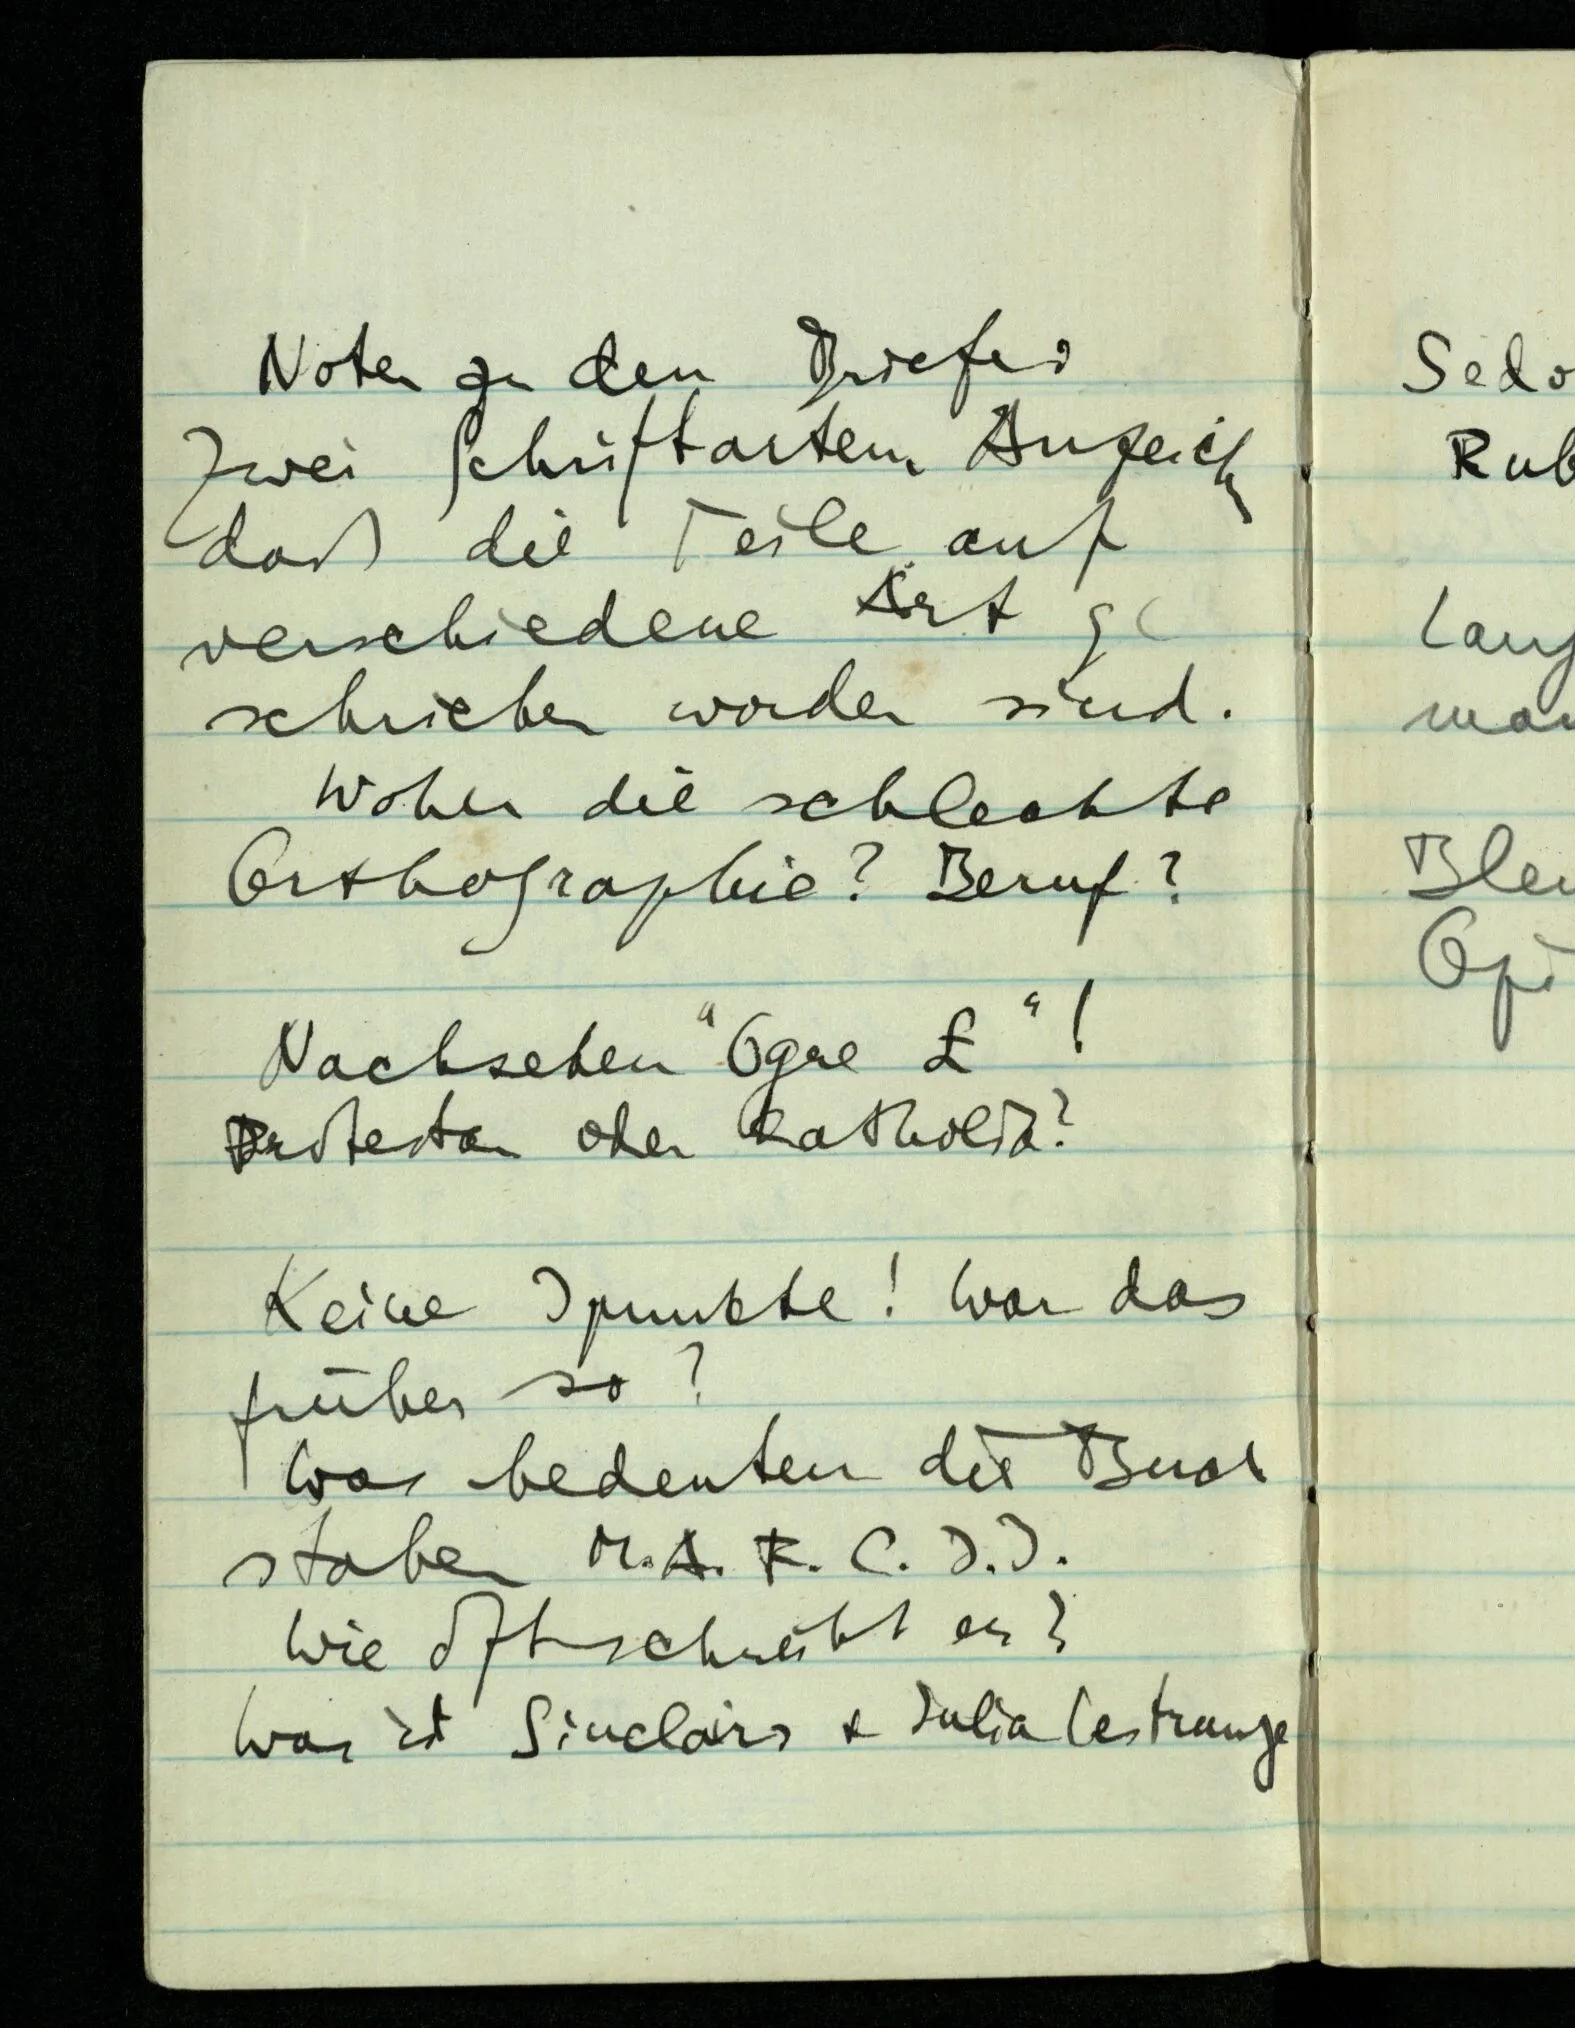 Noten zu den Briefen
Zwei Schriftarten Anzeich
daß die Teile auf
verschiedene Art ge
schrieben worden sind.
Woher die schlechte
Orthographie? Beruf?
Nachsehen "Ogre £"!
Protestan oder Katholik?
Keine Ipunkte! War das
früher so?
Was bedeuten die Buch
staben M.A. K. C. J.J.
Wie oft schreibt er?
Was ist Sinclairs & Julia Lestrange
Sedo
Rub
Lang
man
Blen
Opi